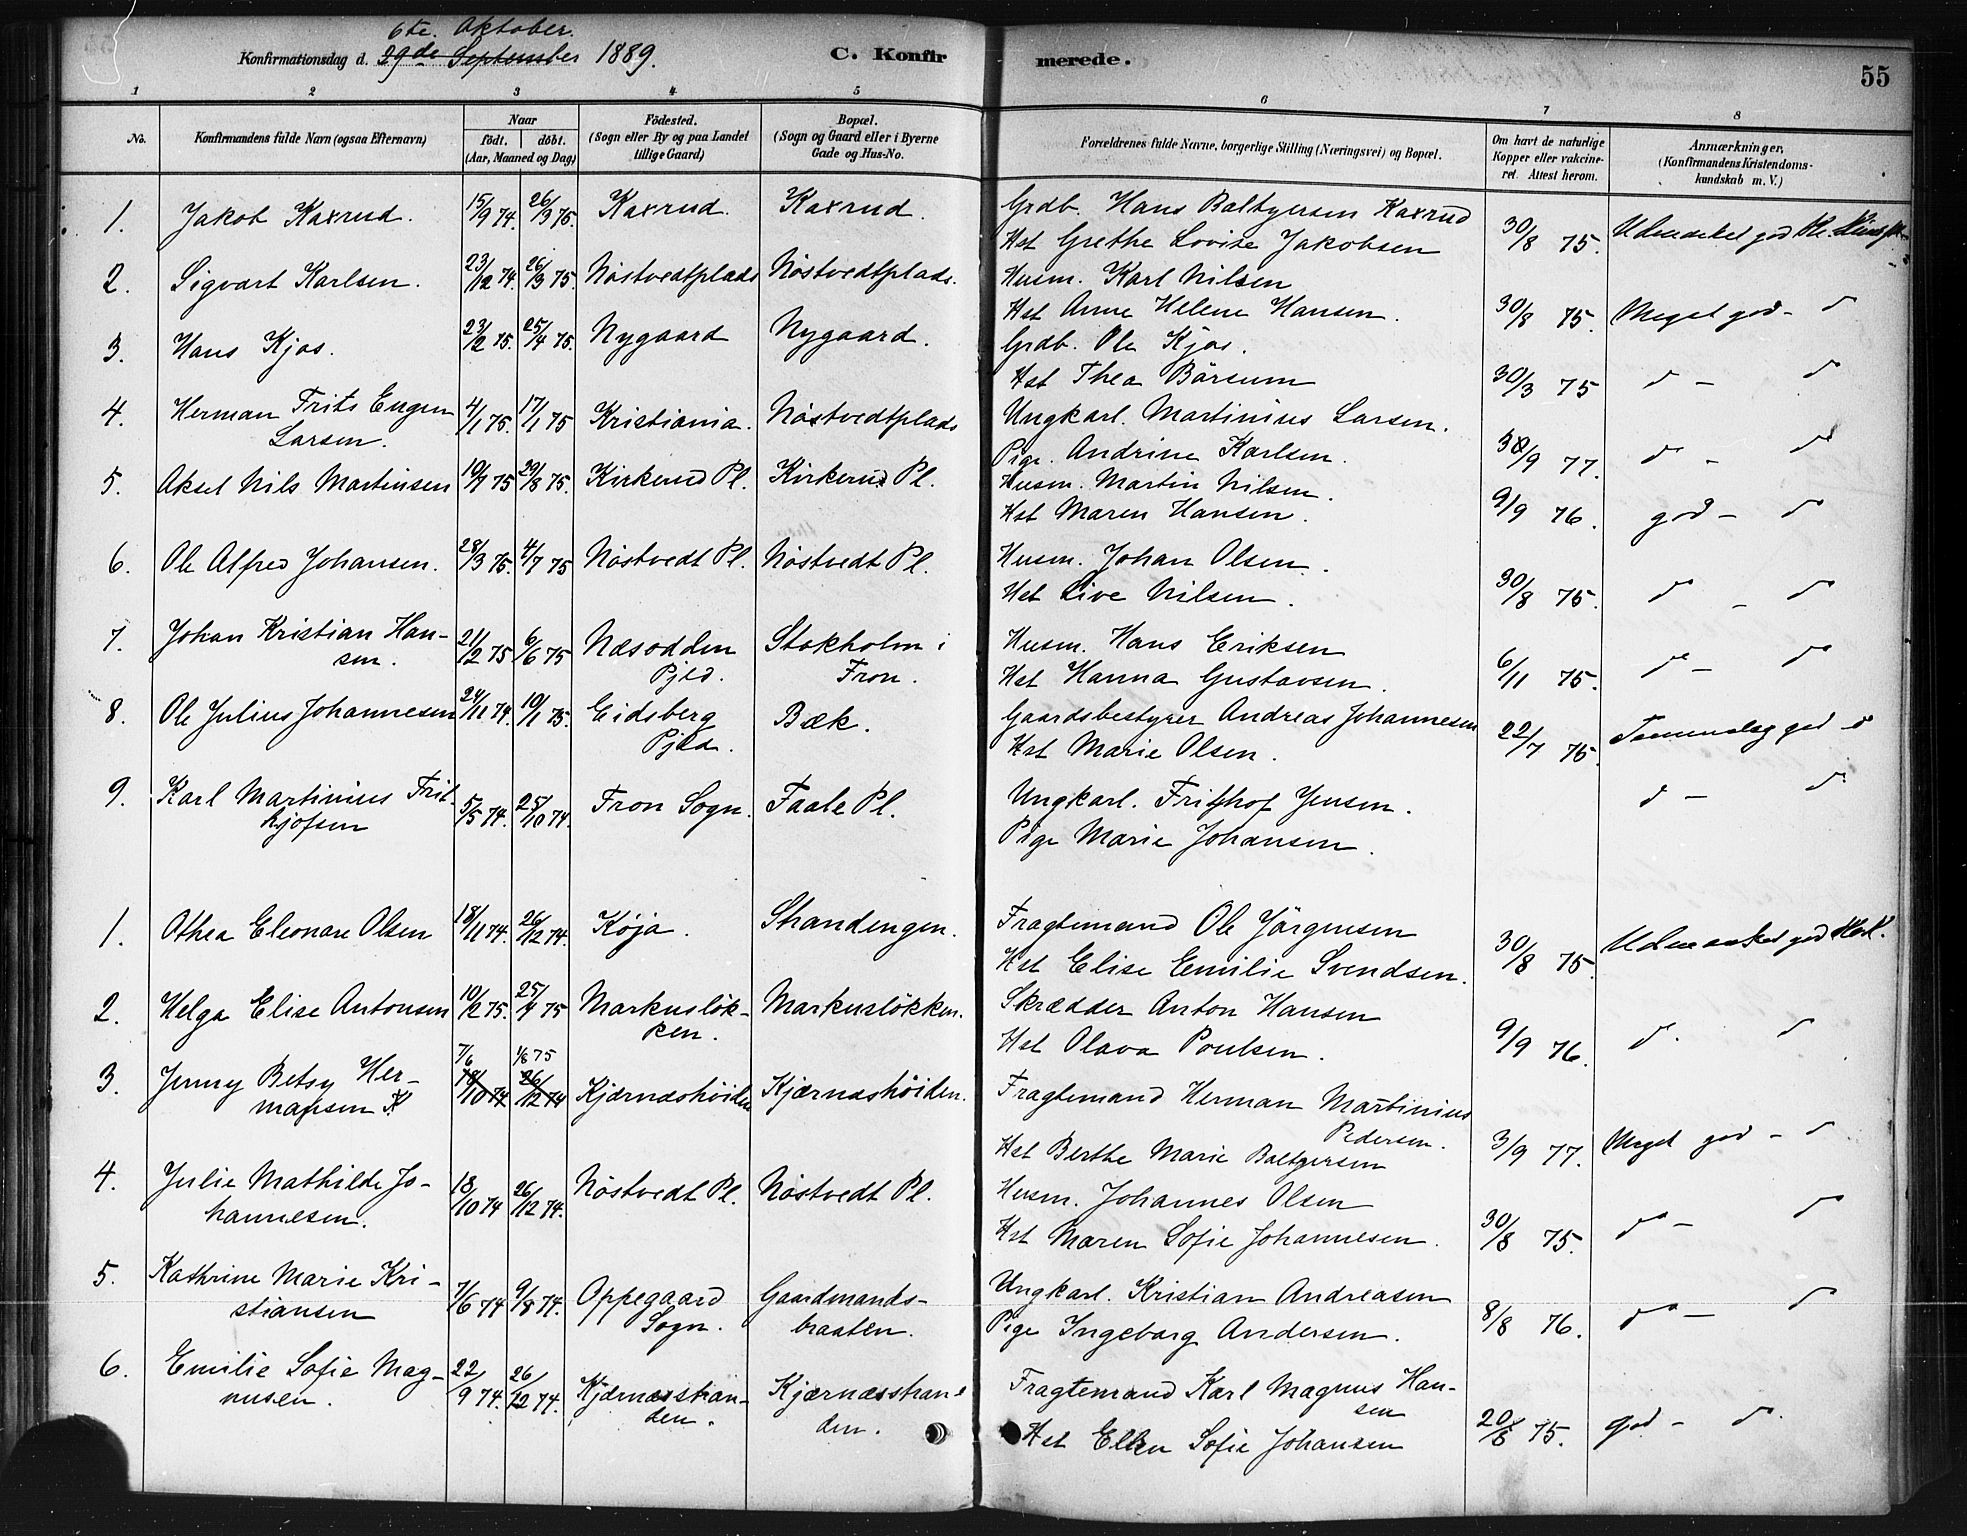 6te. Oktober.
Konfirmationsdag d. 29de September 1889.
C. Konfirmerede.
55
1 2 3 4 5 6 7 8
No.
Konfirmandens fulde Navn (ogsaa Efternavn)
Naar
født. døbt.
(Aar, Maaned og Dag)
Fødested.
(Sogn eller By og paa Landet
tillige Gaard)
Bopæl.
(Sogn og Gaard eller i Byerne
Gade og Hus-No.
Forældrenes fulde Navne, borgerlige Stilling (Næringsvei) og Bopæl.
Om havt de naturlige
Kopper eller vakcine-
ret. Attest herom.
Anmærkninger,
(Konfirmandens Kristendoms-
kundskab m. V.)
1. Jakob Kaxrud. 15/9 74. 26/3 75. Kaxrud. Kaxrud. Grdb. Hans Baltzersen Kaxrud
Hst Grethe Lovise Jakobsen 30/8 75. Udmærket god
2. Sigvart Karlsen. 23/12 74. 26/3 75. Nöstvedtplads Nöstvedtplads. Husm. Karl Nilsen
Hst Anne Helene Hansen. 30/8 75. Meget god - d
3. Hans Kjos. 23/2 75. 25/4 75. Nygaard Nygaard. Grdb. Ole Kjos.
Hst Thea Börsum 30/3 75 d - d
4. Herman Frits Eugen 4/1 75. 17/1 75 Kristiania. Nöstvedtplads Ungkarl. Martinius Larsen.
Larsen. Pige. Andrine Karlsen. 30/9 77. d - d
5. Aksel Nils Martinsen 19/7 75 29/8 75. Kirkerud Pl. Kirkerud Pl. Husm. Martin Nilsen.
Hst Maren Hansen. 9/9 76. god - d
6. Ole Alfred Johansen. 28/3 75. 4/7 75 Nöstvedt Pl. Nöstvedt Pl. Husm. Johan Olsen.
Hst Live Nilsen. 30/8 75. d - d
7. Johan Kristian Han- 21/12 75 6/6 75 Næsodden Stokholm i Husm. Hans Eriksen
sen. Pjed. Fron. Hst Hanna Gustavsen. 6/11 75. d - d
8. Ole Julius Johannesen 24/11 74. 10/1 75. Eidsberg Bæk. Gaardsbestyrer Andreas Johannesen
Pjed. Hst Marie Olsen. 22/7 75. Temmelig god d
9. Karl Martinius Frit- 5/5 74. 25/10 74. Fron Sogn. Faale Pl. Ungkarl. Frithof Jensen. d - d
hjofsen Pige Marie Johansen.
1. Othea Eleonore Olsen 18/11 74. 26/12 74. Køja. Strandengen. Fragtemand Ole Jörgensen
Hst Elise Emilie Svendsen. 30/8 75. Udmærket god
2. Helga Elise Antonsen 10/12 75. 25/4 75 Markusløk- Markusløkken. Skrædder Anton Hansen
ken. Hst Olava Poulsen. 9/9 76. d. d
7/6 1/8 75
3. Jenny Betsy Her- 18/10 74 26/12 74 Kjærneshöiden Kjærneshöiden. Fragtemand Herman Martinius
mansen Pedersen.
Hst Berthe Marie Baltzersen 3/9 77. Meget god - d
4. Julie Mathilde Jo- 18/10 74 26/12 74. Nöstvedt Pl. Nöstvedt Pl. Husm. Johannes Olsen
hannesen. Hst Maren Sofie Johannesen. 30/8 75. d - d
5. Kathrine Marie Kri- 7/6 74 9/8 74. Oppegaard Gaardmands- Ungkarl. Kristian Andreasen
stiansen Sogn. braaten. Pige Ingeborg Andersen. 8/8 76. d - d
6. Emilie Sofie Mag- 22/9 74. 26/12 74. Kjærnæsstran- Kjærnæsstran- Fragtemand Karl Magnus Han-
nusen. den. den. sen
Hst Ellen Sofie Johansen 75. god - d